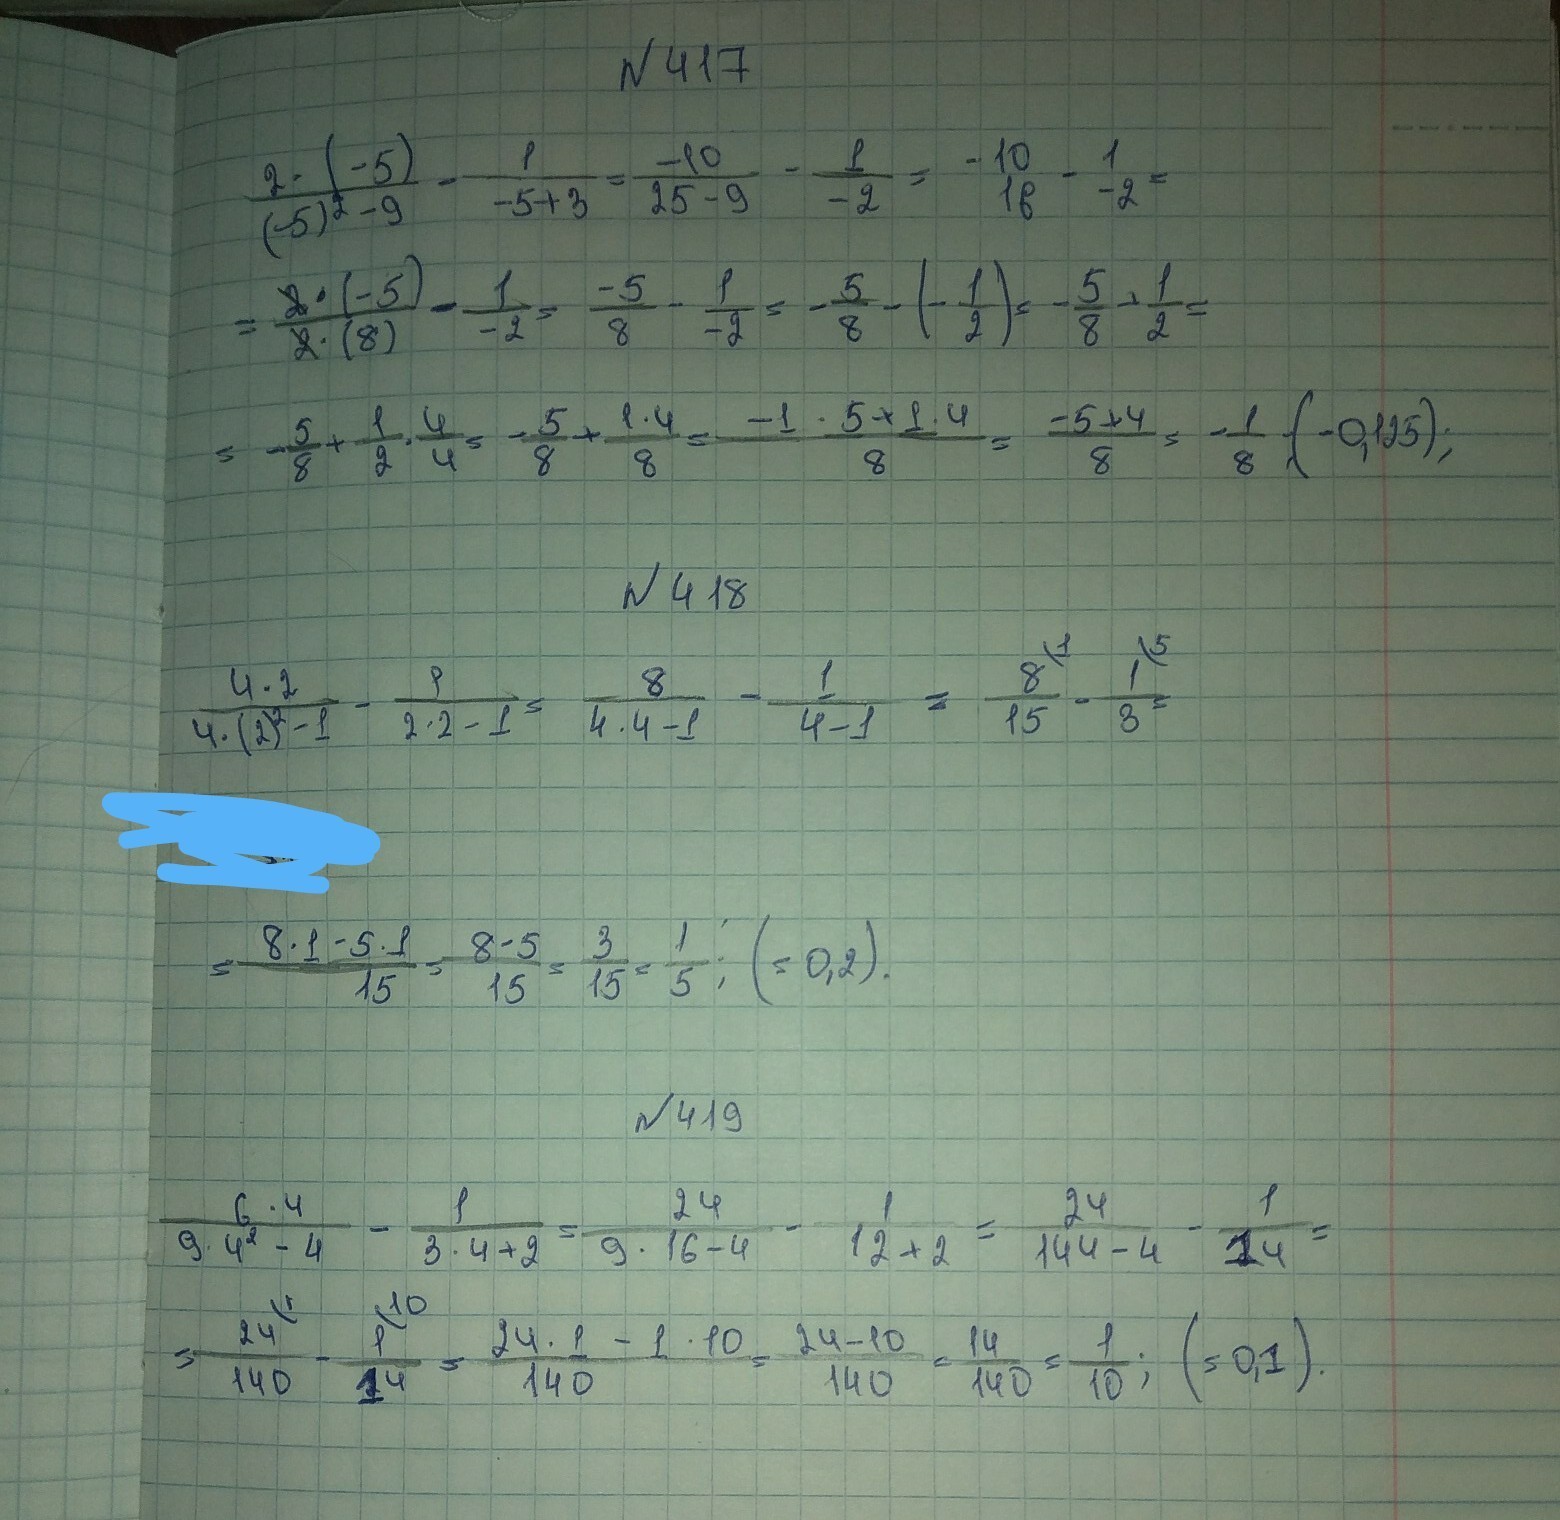 N 417
2·(-5)/((-5)²-9) - 1/(-5+3) = -10/(25-9) - 1/(-2) = -10/16 - 1/(-2) =
= 2·(-5)/(2·(8)) - 1/(-2) = -5/8 - 1/(-2) = -5/8 - (-1/2) = -5/8 + 1/2 =
= -5/8 + 1/2 · 4/4 = -5/8 + 1·4/8 = (-1·5+1·4)/8 = (-5+4)/8 = -1/8 (-0,125);
N 418
4·2/(4·(2)²-1) - 1/(2·2-1) = 8/(4·4-1) - 1/(4-1) = 8\1/15 - 1\5/3 =
= (8·1-5·1)/15 = (8-5)/15 = 3/15 = 1/5; (=0,2).
N 419
6·4/(9·4²-4) - 1/(3·4+2) = 24/(9·16-4) - 1/(12+2) = 24/(144-4) - 1/14 =
= 24\1/140 - 1\10/14 = (24·1-1·10)/140 = (24-10)/140 = 14/140 = 1/10; (=0,1).